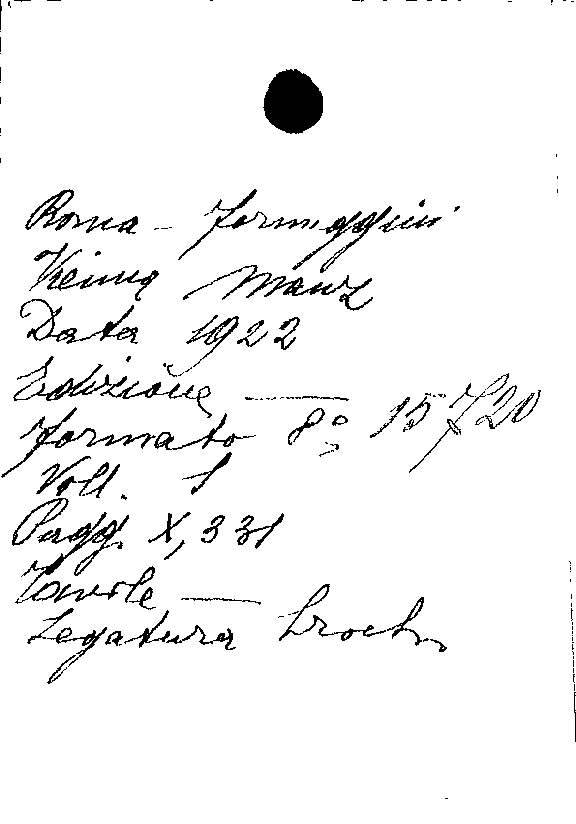 Roma - Formiggini
Vienna Manz
Data 1922
Edizione —
formato 8° 15 x 20
Voll. 1
Pagg. X, 331
Tavole —
Legatura broch